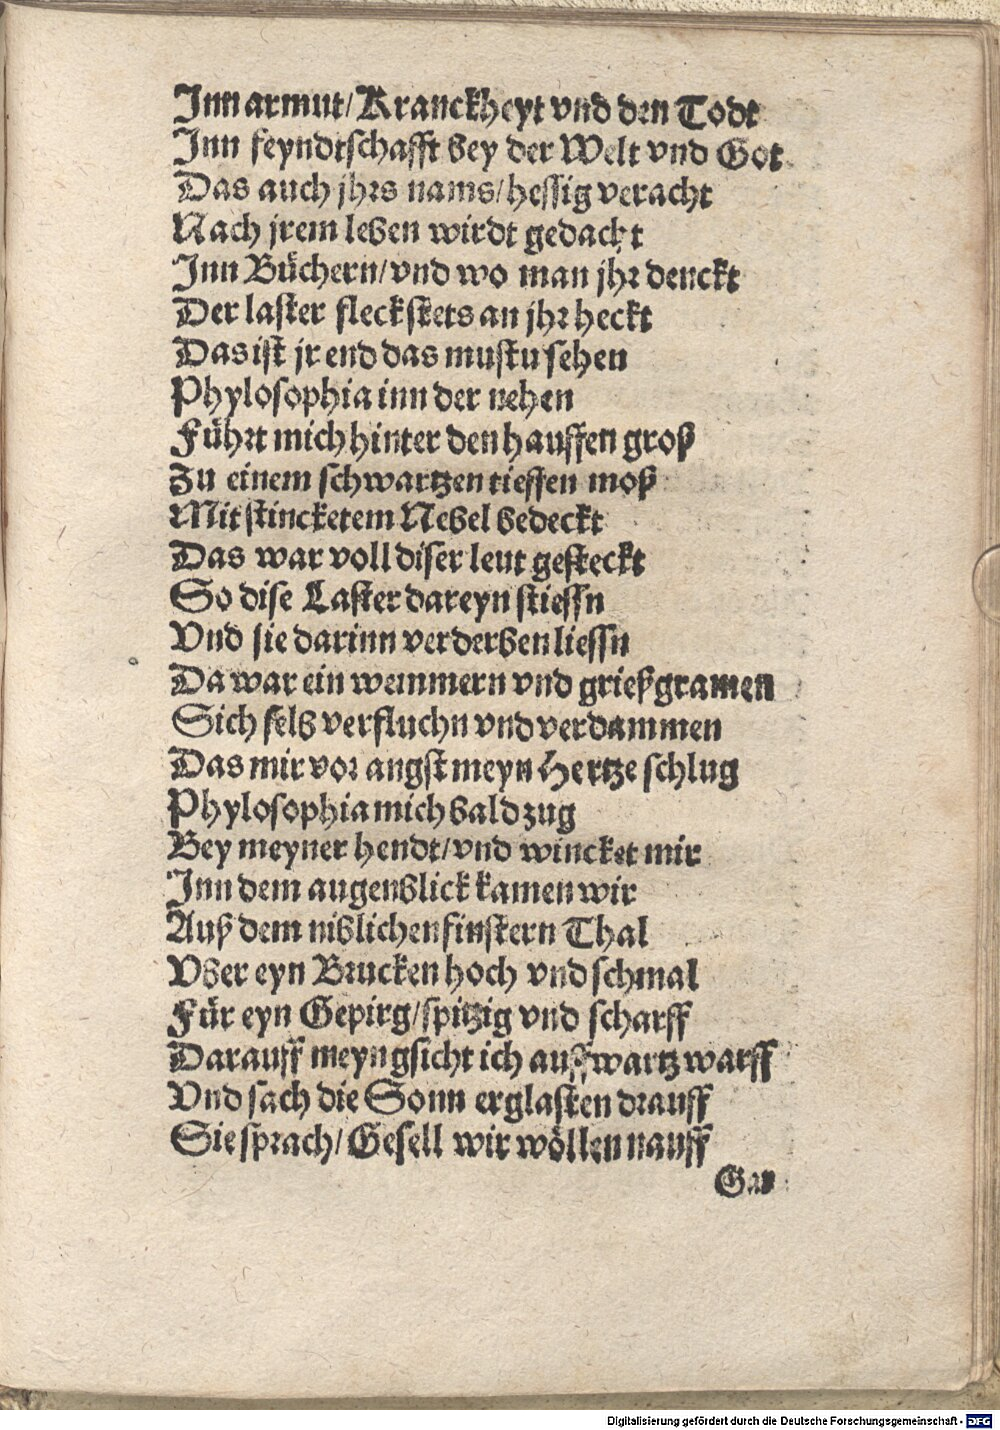 Inn armut/ Kranckheyt vnd den Todt
Inn feyndtschafft bey der Welt vnd Got
Das auch jhrs nams/ hessig veracht
Nach jrem leben wirdt gedacht
Inn Bůchern/ vnd wo man jhr denckt
Der laster fleck stets an jhr heckt
Das ist jr end das mustu sehen
Phylosophia inn der nehen
Fůhrt mich hinter den hauffen groß
Zu einem schwartzen tieffen moß
Mit stincketem Nebel bedeckt
Das war voll diser leut gesteckt
So dise Laster dareyn stiessn
Vnd sie darinn verderben liessn
Da war ein weinmern vnd grießgramen
Sich selb verfluchn vnd verdammen
Das mir vor angst meyn Hertze schlug
Phylosophia mich bald zug
Bey meyner hendt/ vnd wincket mir
Inn dem augenblick kamen wir
Auß dem niblichen finstern Thal
Vber eyn Brucken hoch vnd schmal
Fůr eyn Gepirg/ spitzig vnd scharff
Darauff meyn gsicht ich auffwartz warff
Vnd sach die Sonn erglasten drauff
Sie sprach/ Gesell wir wöllen nauff
Digitalisierung gefördert durch die Deutsche Forschungsgemeinschaft - DFG